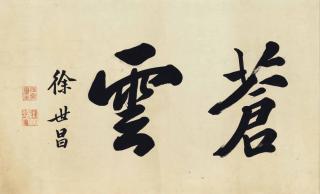 蒼雲
徐世昌